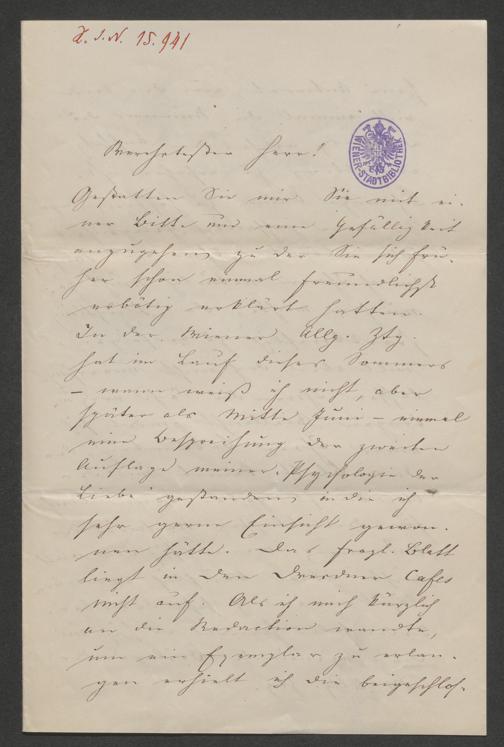 Z. J. N. 15.941
WIENER-STADTBIBLIOTHEK
Verehrtester Herr!
Gestatten Sie mir Sie mit ei-
ner Bitte und eine Gefälligkeit
anzugehen, zu der Sie sich frü-
her schon einmal freundlichst
erbötig erklärt hatten.
In der Wiener Allg. Ztg.
hat im Lauf dieses Sommers
– wann weiß ich nicht, aber
später als Mitte Juni – einmal
eine Besprechung der zweiten
Auflage meiner "Psychologie der
Liebe" gestanden, in die ich
sehr gerne Einsicht gewon-
nen hätte. Das fragl. Blatt
liegt in den Dresdner Cafes
nicht auf. Als ich mich kürzlich
an die Redaction wandte,
um ein Exemplar zu erlan-
gen erhielt ich die beigeschlos-